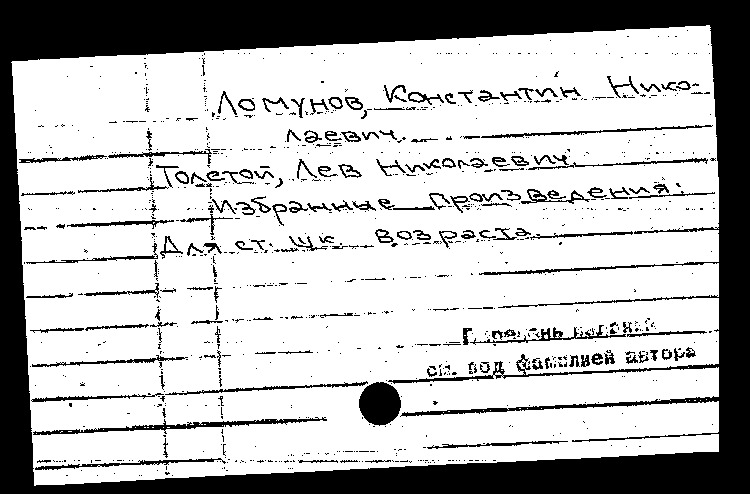 Ломунов, Константин Нико-
лаевич.
Толстой, Лев Николаевич.
Избранные произведения:
Для ст. шк. возраста.
Перечень изданий
см. под фамилией автора